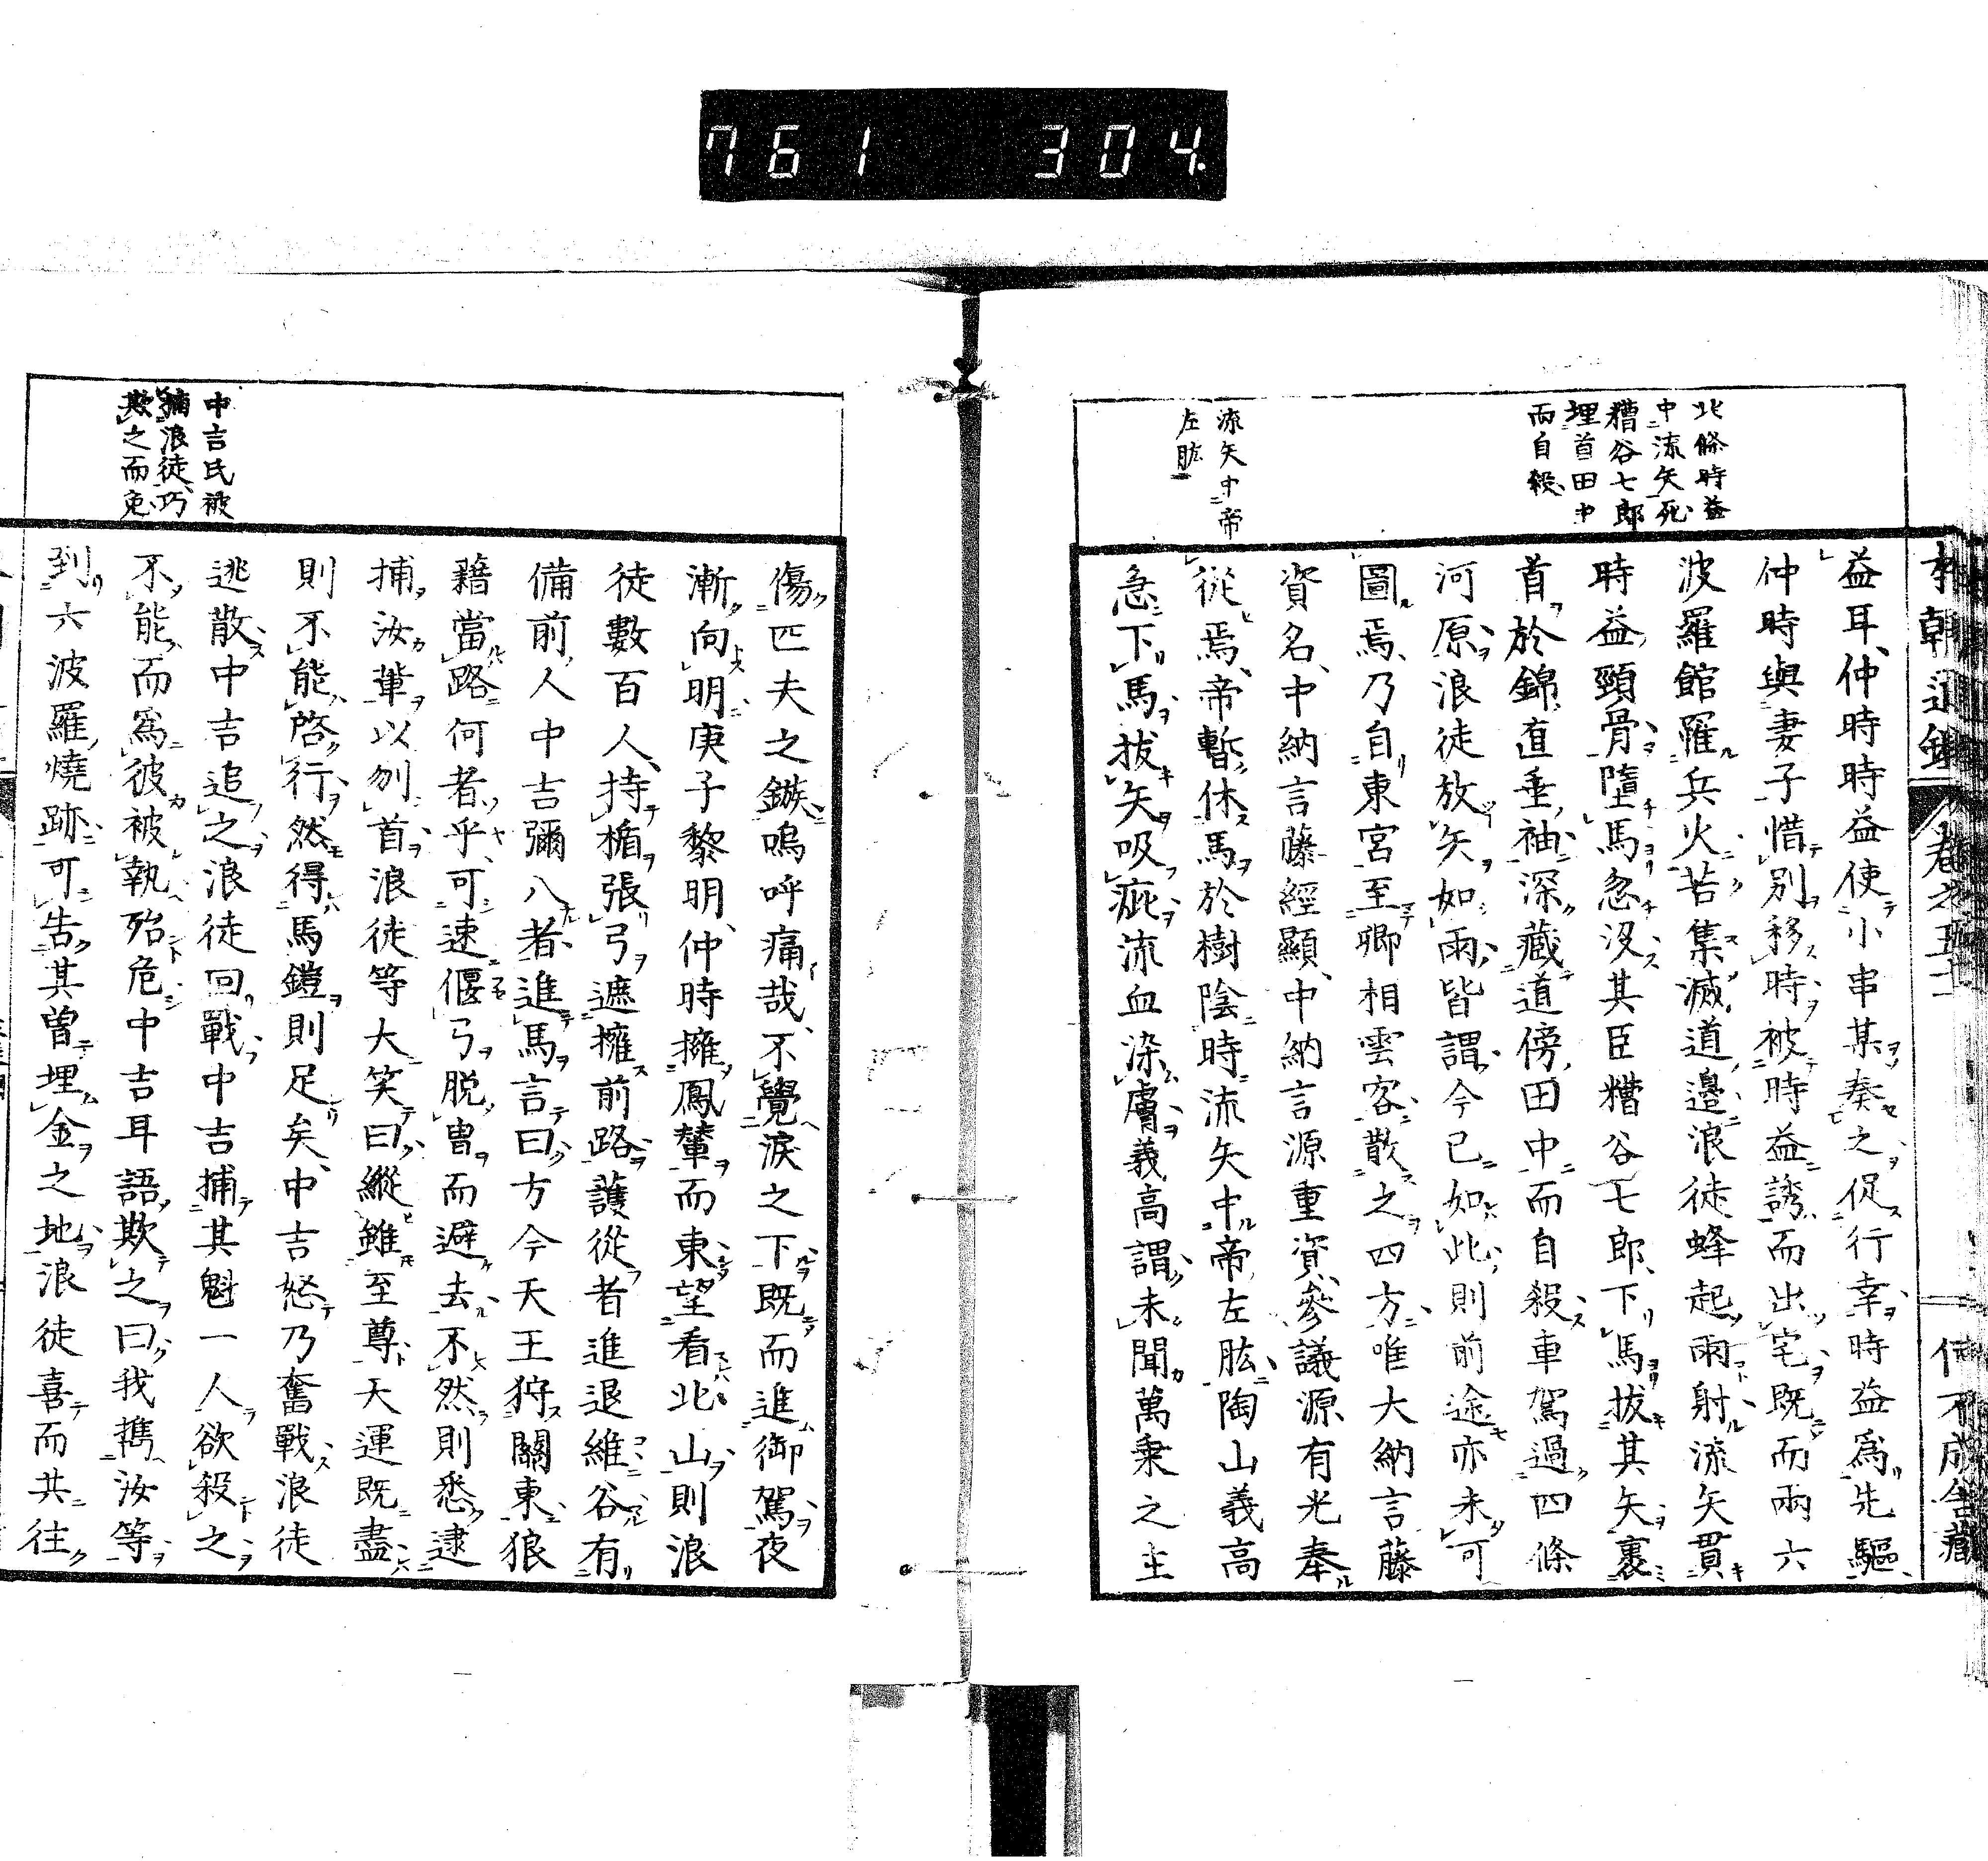 761 304
北條時益
中流矢死
糟谷七郎
埋首田中
而自殺
流矢中帝
左肱
益耳、仲時時益使小串某奏之促行幸時益爲先驅、
仲時與妻子惜別移時被時益誘而出宅既而兩六
波羅館羅兵火苦集滅道邊浪徒蜂起雨射流矢貫
時益頸骨墮馬忽沒其臣糟谷七郎、下馬拔其矢裹
首於錦直垂袖深藏道傍田中而自殺車駕過四條
河原浪徒放矢如雨皆謂今已如此則前途亦未可
圖焉、乃自東宮至卿相雲客散之四方唯大納言藤
資名、中納言藤經顯、中納言源重資、參議源有光奉
從焉、帝暫休馬於樹陰時流矢中帝左肱陶山義高
急下馬拔矢吸疵流血染膚義高謂未聞萬乘之主
中吉氏被
捕浪徒、巧
欺之而免
傷匹夫之鏃嗚呼痛哉、不覺淚之下既而進御駕夜
漸向明庚子黎明、仲時擁鳳輦而東望看北山則浪
徒數百人、持楯張弓遮擁前路護從者進退維谷有
備前人中吉彌八者進馬言曰方今天王狩關東狼
藉當路何者乎、可速偃弓脱冑而避去不然則悉逮
捕汝輩以刎首浪徒等大笑曰縱雖至尊天運既盡
則不能啓行然得馬鎧則足矣、中吉怒乃奮戰浪徒
逃散中吉追之浪徒回戰中吉捕其魁一人欲殺之
不能而爲彼被執殆危中吉耳語欺之曰我擕汝等
到六波羅燒跡可告其曾埋金之地浪徒喜而共往